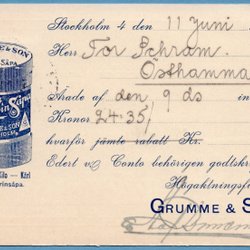 Stockholm 4 den 11 Juni
Herr Tor Öhram.
Östhamma
Arade af den 9 ds in
Kronor 24:35/
hvarför jämte rabatt Kr.
Edert v. Conto behörigen godtskr
Högaktningsf
GRUMME & S
E & SON
SÅPA
& SON
Kilo — Kärl
rinsåpa.